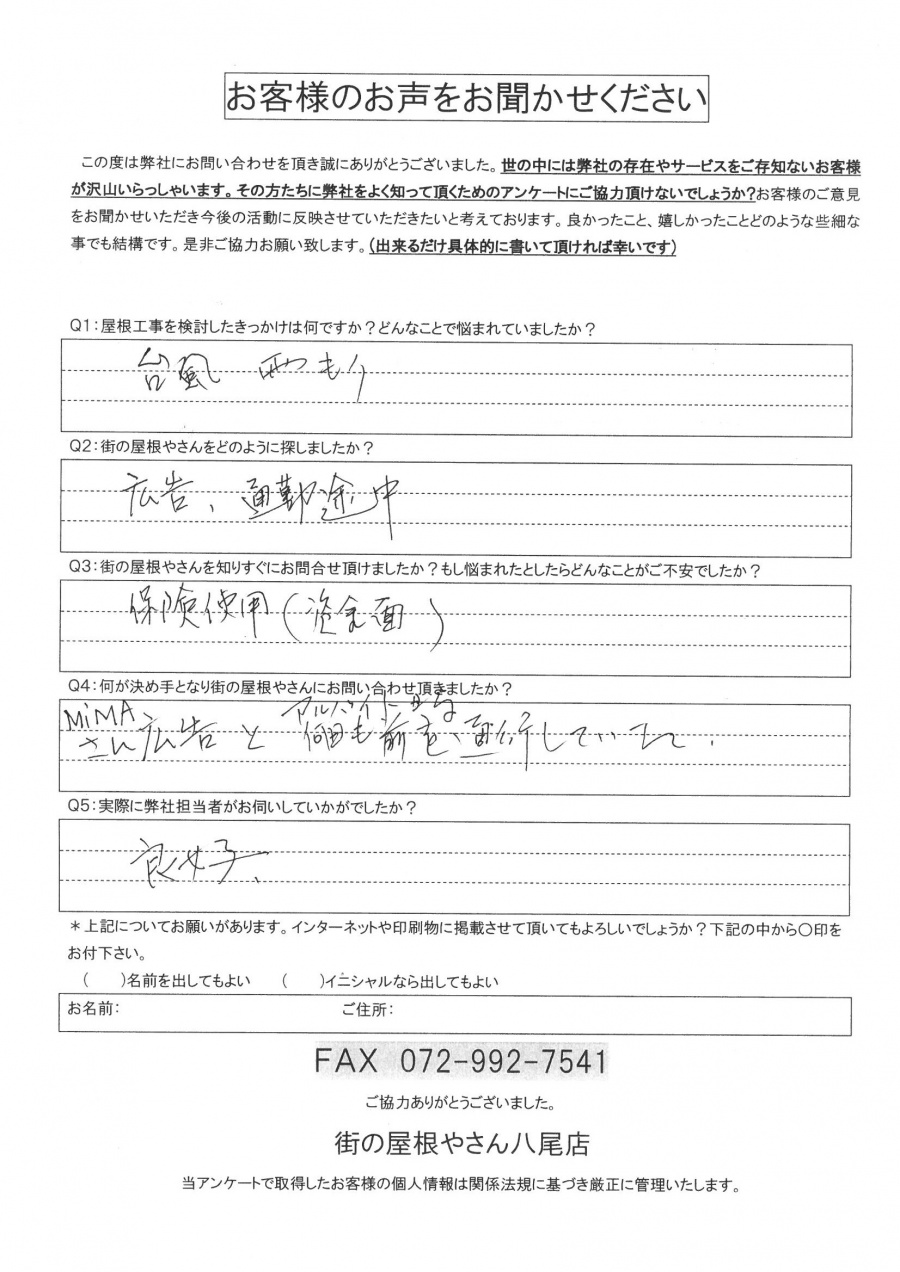 お客様のお声をお聞かせください
この度は弊社にお問い合わせを頂き誠にありがとうございました。世の中には弊社の存在やサービスをご存知ないお客様
が沢山いらっしゃいます。その方たちに弊社をよく知って頂くためのアンケートにご協力頂けないでしょうか?お客様のご意見
をお聞かせいただき今後の活動に反映させていただきたいと考えております。良かったこと、嬉しかったことどのような些細な
事でも結構です。是非ご協力お願い致します。(出来るだけ具体的に書いて頂ければ幸いです)
Q1:屋根工事を検討したきっかけは何ですか?どんなことで悩まれていましたか?
台風 雨もり
Q2:街の屋根やさんをどのように探しましたか?
広告、通勤途中
Q3:街の屋根やさんを知りすぐにお問合せ頂けましたか?もし悩まれたとしたらどんなことがご不安でしたか?
保険使用(資金面)
Q4:何が決め手となり街の屋根やさんにお問い合わせ頂きましたか?
MiMA アルバイト
さん広告と 何回も前を通行していた.
Q5:実際に弊社担当者がお伺いしていかがでしたか?
良好、
*上記についてお願いがあります。インターネットや印刷物に掲載させて頂いてもよろしいでしょうか?下記の中から〇印を
お付下さい。
( )名前を出してもよい ( )イニシャルなら出してもよい
お名前: ご住所:
FAX 072-992-7541
ご協力ありがとうございました。
街の屋根やさん八尾店
当アンケートで取得したお客様の個人情報は関係法規に基づき厳正に管理いたします。